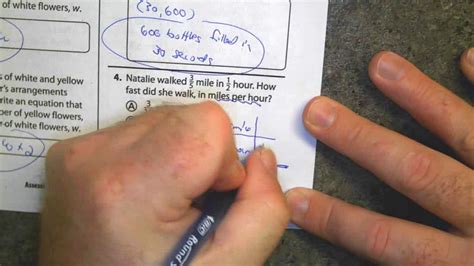 of white flowers, w.
(30,600)
600 bottles filled in
30 seconds
s of white and yellow
r's arrangements
rite an equation that
ber of yellow flowers,
of white flowers, w.
4. Natalie walked 3/5 mile in 1/2 hour. How
fast did she walk, in miles per hour?
A 3
x 2
Assess
BIC Round S